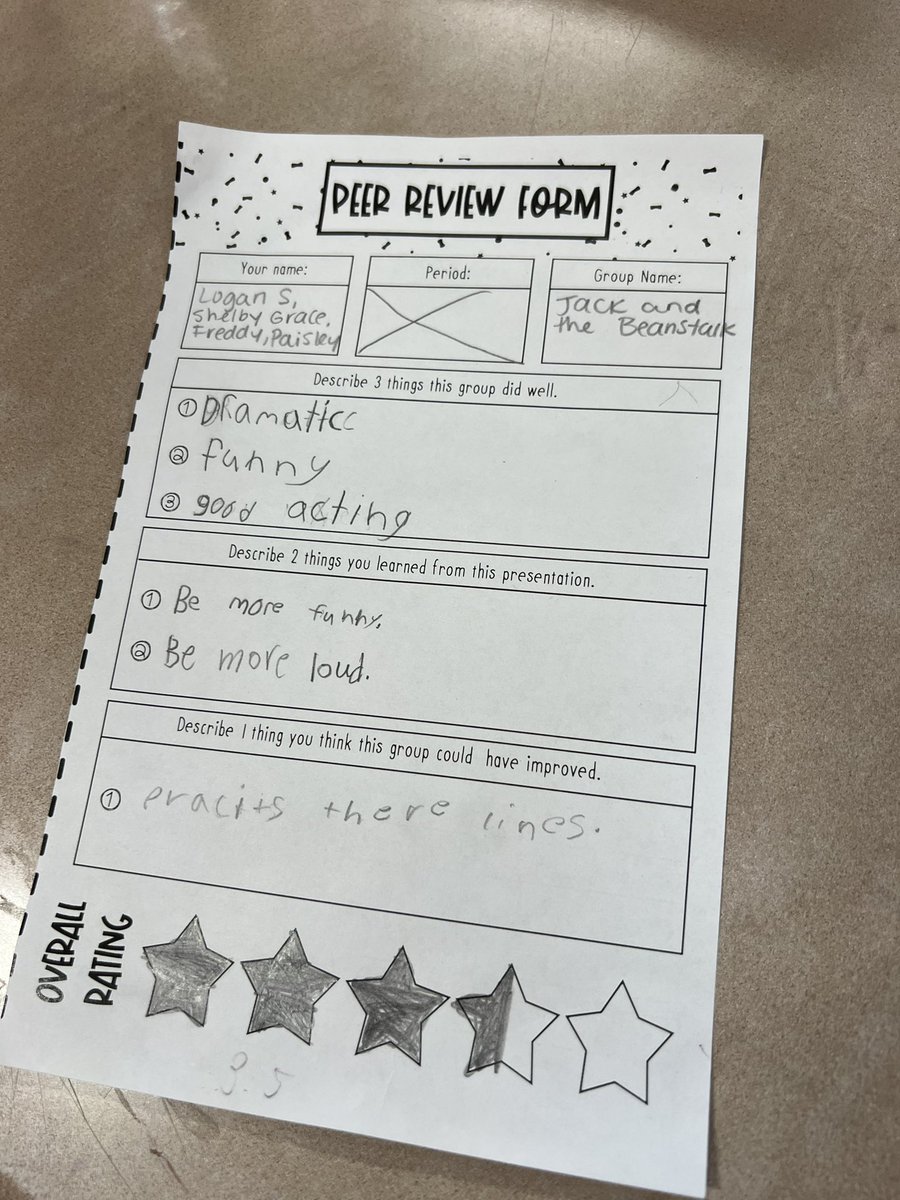 PEER REVIEW FORM
Your name:
Logan S,
Shelby Grace,
Freddy, Paisley
Period:
Group Name:
Jack and
the Beanstalk
Describe 3 things this group did well.
① Dramaticc
② funny
③ good acting
Describe 2 things you learned from this presentation.
① Be more funny.
② Be more loud.
Describe 1 thing you think this group could have improved.
① pracits there lines.
OVERALL
RATING
3.5